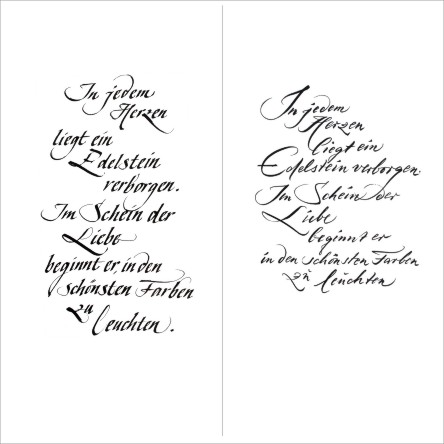 In jedem
Herzen
liegt ein
Edelstein
verborgen.
Im Schein der
Liebe
beginnt er, in den
schönsten Farben
zu
leuchten.
In jedem
Herzen
liegt ein
Edelstein verborgen.
Im Schein der
Liebe
beginnt er
in den schönsten Farben
zu leuchten